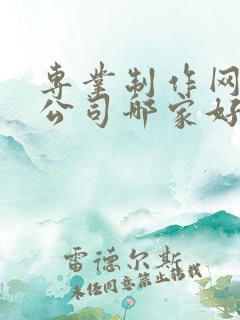 专业制作网
公司哪家好
雷德尔斯
未经同意禁止转载